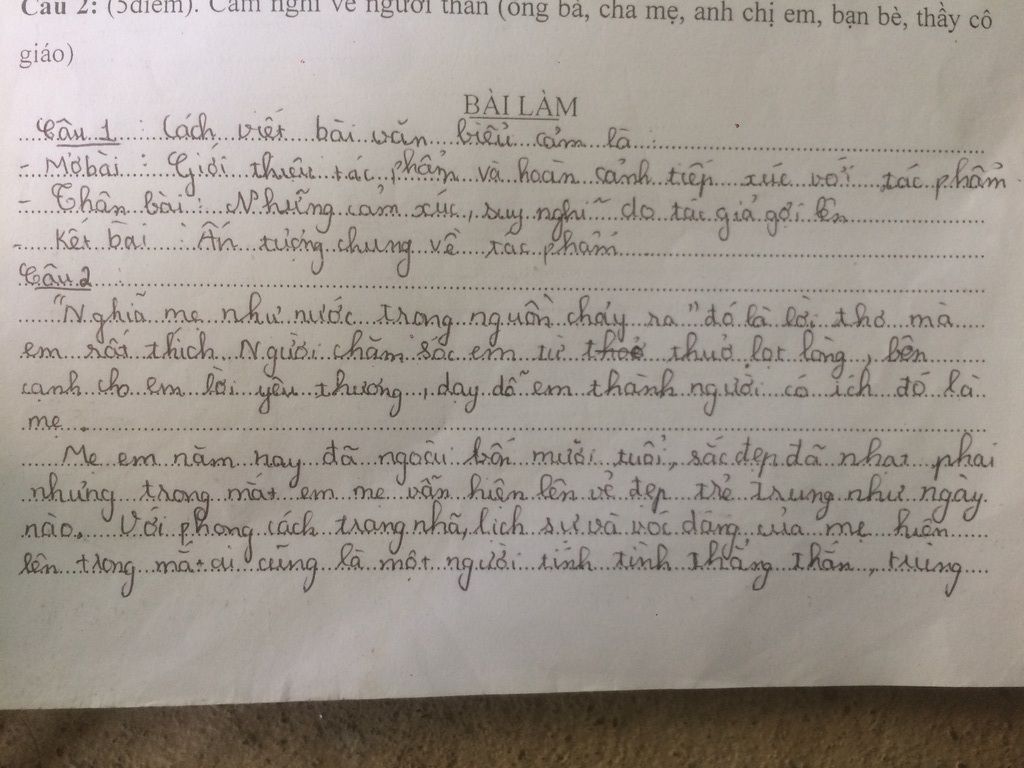 Câu 2: (5điểm). Cảm nghĩ về người thân (ông bà, cha mẹ, anh chị em, bạn bè, thầy cô
giáo)
BÀI LÀM
Câu 1 : Cách viết bài văn biểu cảm là :
- Mở bài : Giới thiệu tác phẩm và hoàn cảnh tiếp xúc với tác phẩm
- Thân bài : Những cảm xúc, suy nghĩ do tác giả gợi lên
- Kết bài : Ấn tượng chung về tác phẩm
Câu 2 :
"Nghiã mẹ như nước trong nguồn chảy ra" đó là lời thơ mà
em rất thích. Người chăm sóc em từ thuở lọt lòng, bên
cạnh cho em lời yêu thương, dạy dỗ em thành người có ích đó là
mẹ.
Mẹ em năm nay đã ngoài bốn mười tuổi, sắc đẹp đã nhạt phai
nhưng trong mắt em mẹ vẫn hiện lên vẻ đẹp trẻ trung như ngày
nào. Với phong cách trang nhã, lịch sự và vóc dáng của mẹ hiện
lên trong mắt ai cũng là một người tính tình thẳng thắn, trung